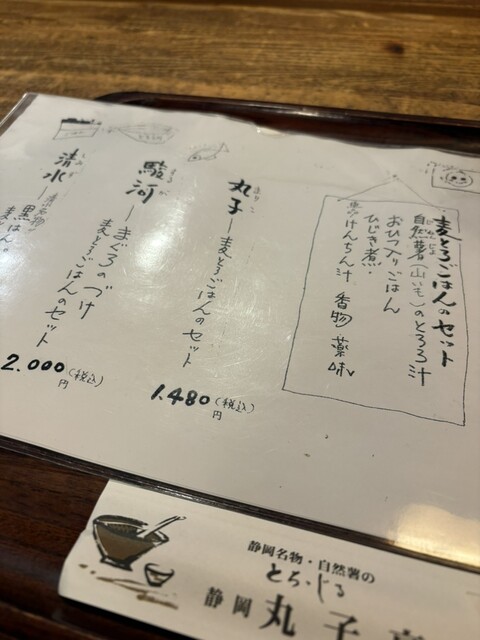 麦とろごはんのセット
自然薯(山いも)のとろろ汁
おひつ入りごはん
ひじき煮
けんちん汁 香物 薬味
まりこ
丸子ー麦とろごはんのセット
1.480(税込)
円
するが
駿河ーまぐろのづけ
麦とろごはんのセット
2.000(税込)
円
清水ー
黒
麦はんの
静岡名物・自然薯の
とろろじる
静岡 丸子